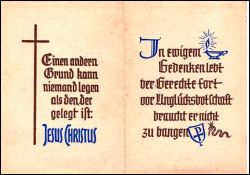 Einen andern
Grund kann
niemand legen
als den, der
gelegt ist:
JESUS CHRISTUS
In ewigem
Gedenken lebt
der Gerechte fort
vor Unglücksbotschaft
braucht er nicht
zu bangen